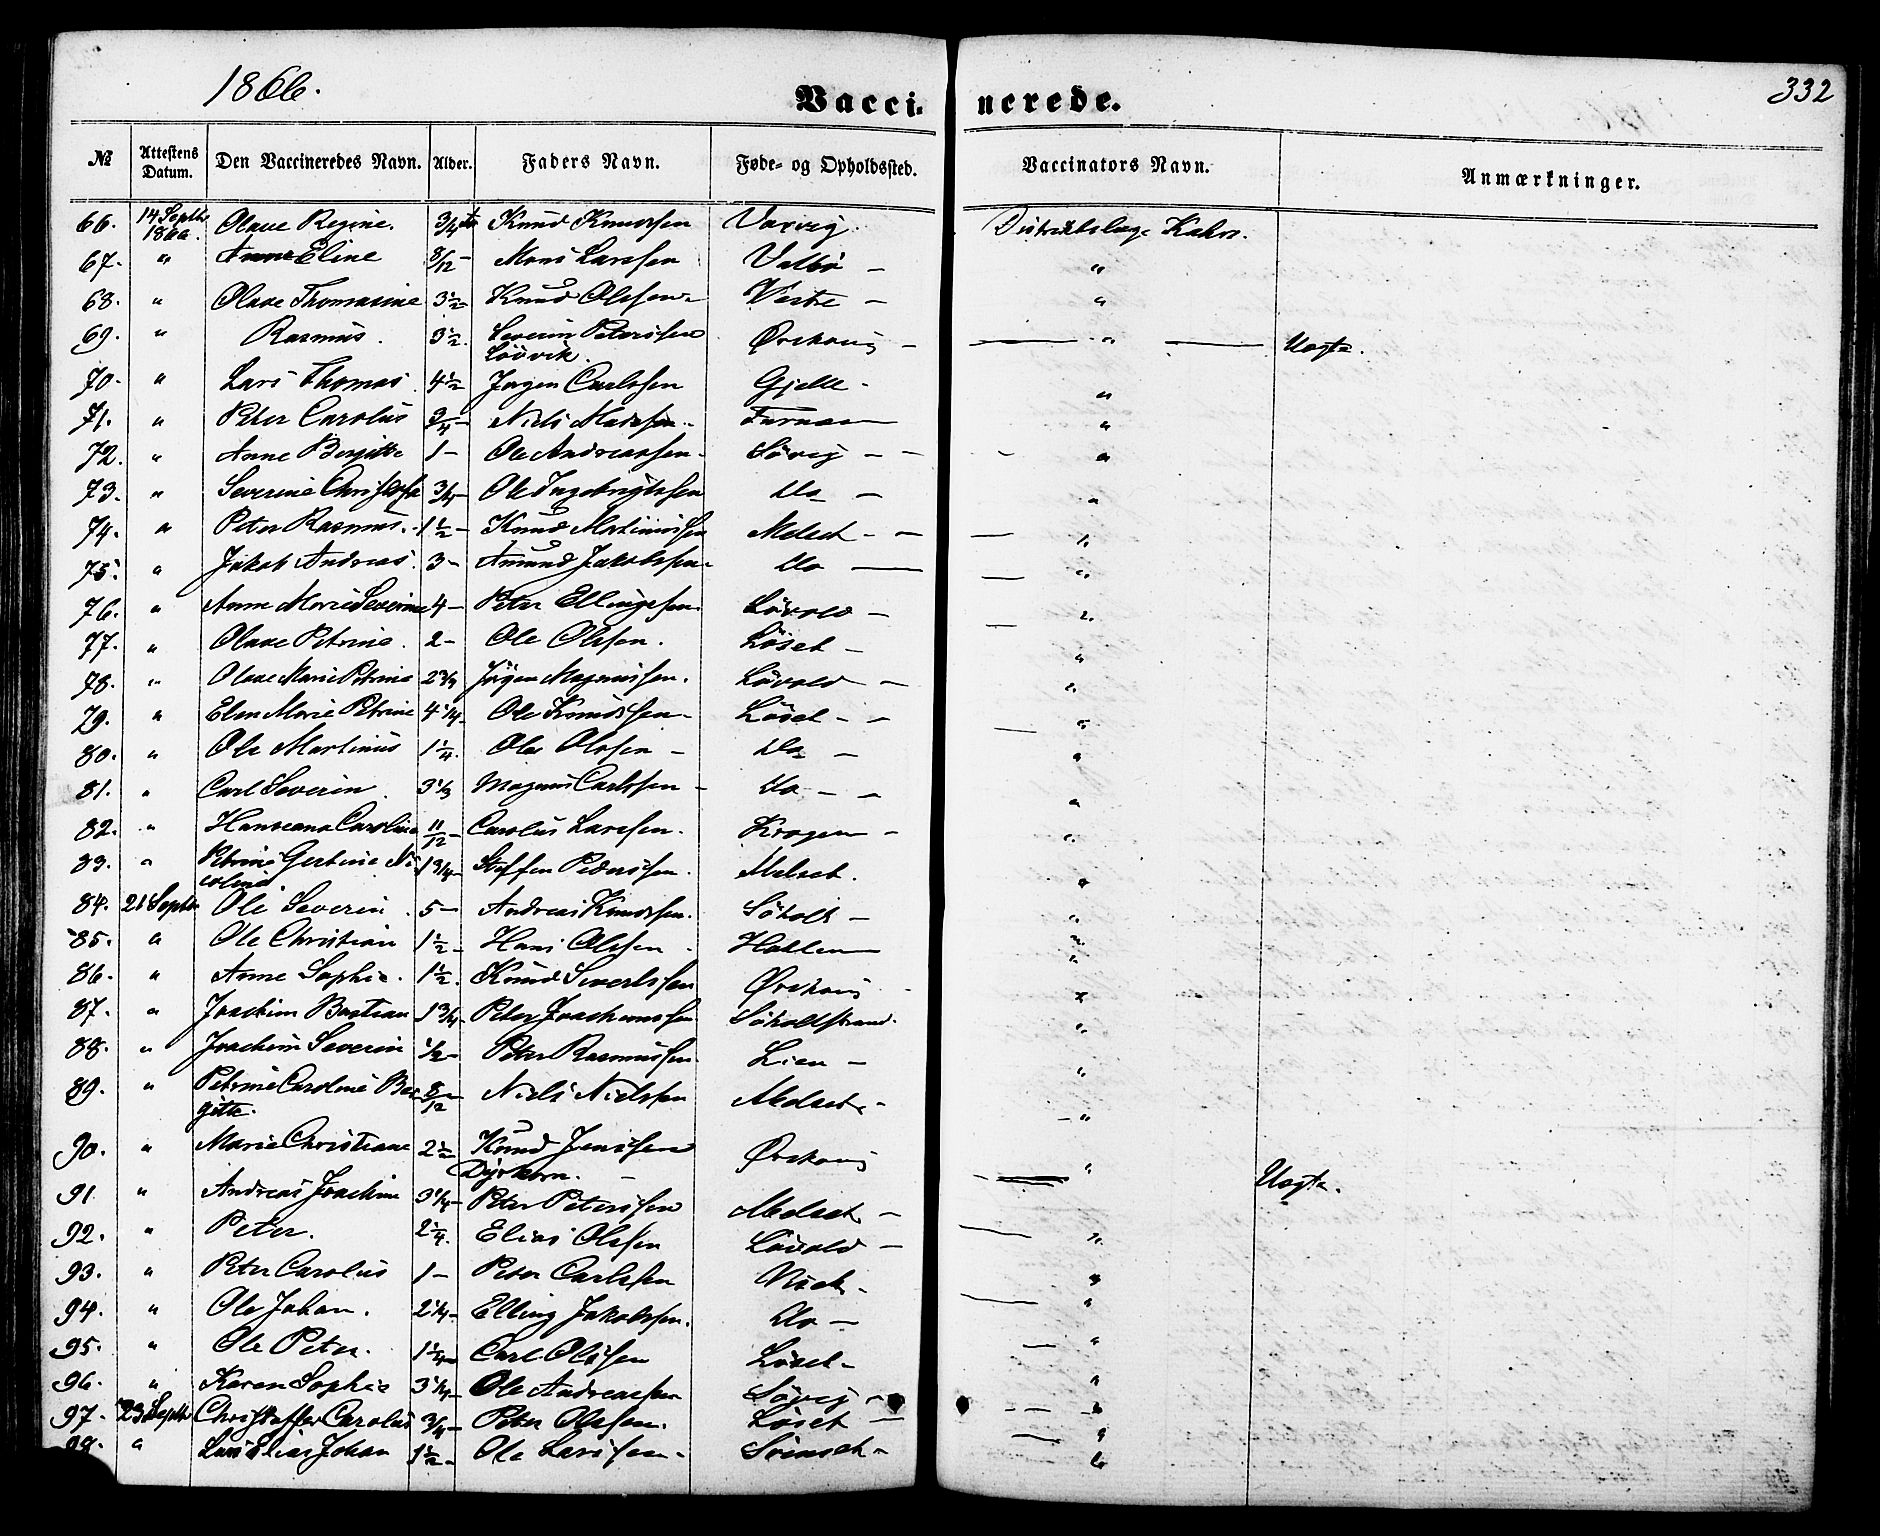 1866.
Vaccinerede.
332
№ Attestens Datum. Den Vaccineredes Navn. Alder. Faders Navn. Føde- og Opholdssted. Vaccinators Navn. Anmærkninger.
66. 14 Septbr 1866. Olave Regine. 3/4 Knud Knudsen Vaxvig Distriktslæge Kahrs.
67. " Anne Eline 8/12 Mons Larssen Valbø — "
68. " Olave Thomasine 3 1/2 Knud Olssen Vestre — "
69. " Rasmus. 3 1/2. Severin Peterssen Løøvik. Ørskoug — " — Uægte.
70. " Lars Thomas. 4 1/2 Jørgen Carlssen Gjelle - "
71. " Peter Carolus 3/4 — Niels Madssen - Furnæs "
72. " Anne Bergitte 1 — Ole Andreassen - Søvig — — - "
73. " Severine 3/4 — Ole Ingebrigtssen Do — "
74. " Peter Rasmus. 1 1/2 — Knud Martinussen Melset - — — "
75. " Jakob Andreas. 3 — Amund Jakobssen - Do — — "
76. " Anne Marie Severine 4 — Peter Ellingssen. Løvold — — "
77. " Olave Petrine. 2 — Ole Olssen. Løset — "
78. " Olave Marie Petrine 2 3/4 Jørgen Magnussen. Løvold — "
79. " Elen Marie Petrine 4 1/4 - Ole Knudssen - Løset - - — "
80. " Ole Martinus 1 1/4. Ole Olssen — Do — "
81. " Carl Severin. 3 1/3 Magnus Carlssen - Do - — "
82. " Hanseana Caroline 11/12 — Carolus Larssen. Kragen — "
83. " Petrine Gertine Nicoline. 1 3/4 — Steffen Pederssen. Melset. "
84. 21 Septbr Ole Severin. 5 — Andreas Knudssen. Søholt — "
85. " Ole Christian 1 1/2 — Hans Olssen - Hatlen "
86. " Anne Sophie. 1 1/2. Knud Sivertssen Ørskoug "
87. " Joachim Bastian 1 3/4 Peter Joachimssen Søholtstrand. "
88. " Joachim Severin 1/2 — Peter Rasmussen. Lien — "
89. " Petrine Caroline Bergitte. 8/12 Niels Nielssen Melset - — "
90. " Marie Christiane 2 1/2 Knud Jenssen Dyrkorn. — Ørskoug — " Uægte.
91 " Andreas Joachim 3 1/4 — Peter Peterssen Melset —
92. " Peter. 2 1/4. Elias Olssen Løvold — — "
93. " Peter Carolus 1 — Peter Carlssen - "
94. " Ole Johan. 2 1/4 — Elling Jakobssen. Do — — "
95. " Ole Peter. 1 1/4 Carl Olssen Løset - — "
96. " Karen Sophie 3 1/4 — Ole Andreassen Søvig — "
97. 23 Septbr Christoffer Carolus 3/4 — Peter Olssen. Løset — - — "
98. " Lars Elias Johan 1 1/2 — Ole Larssen - — "